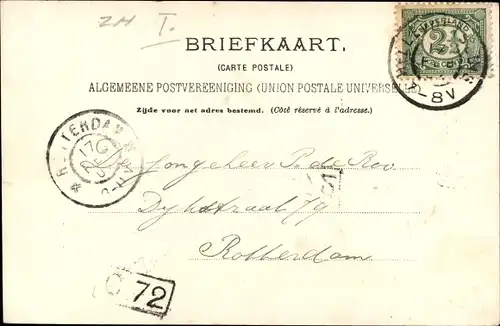 ZH I.
BRIEFKAART.
(CARTE POSTALE)
ALGEMEENE POSTVEREENIGING (UNION POSTALE UNIVERSELLE)
Zijde voor het adres bestemd. (Côté réservé à l'adresse.)
NEDERLAND
2½
8V
ROTTERDAM
17
Den Jongeheer P. de Roo
Dijkstraat 79
Rotterdam
72